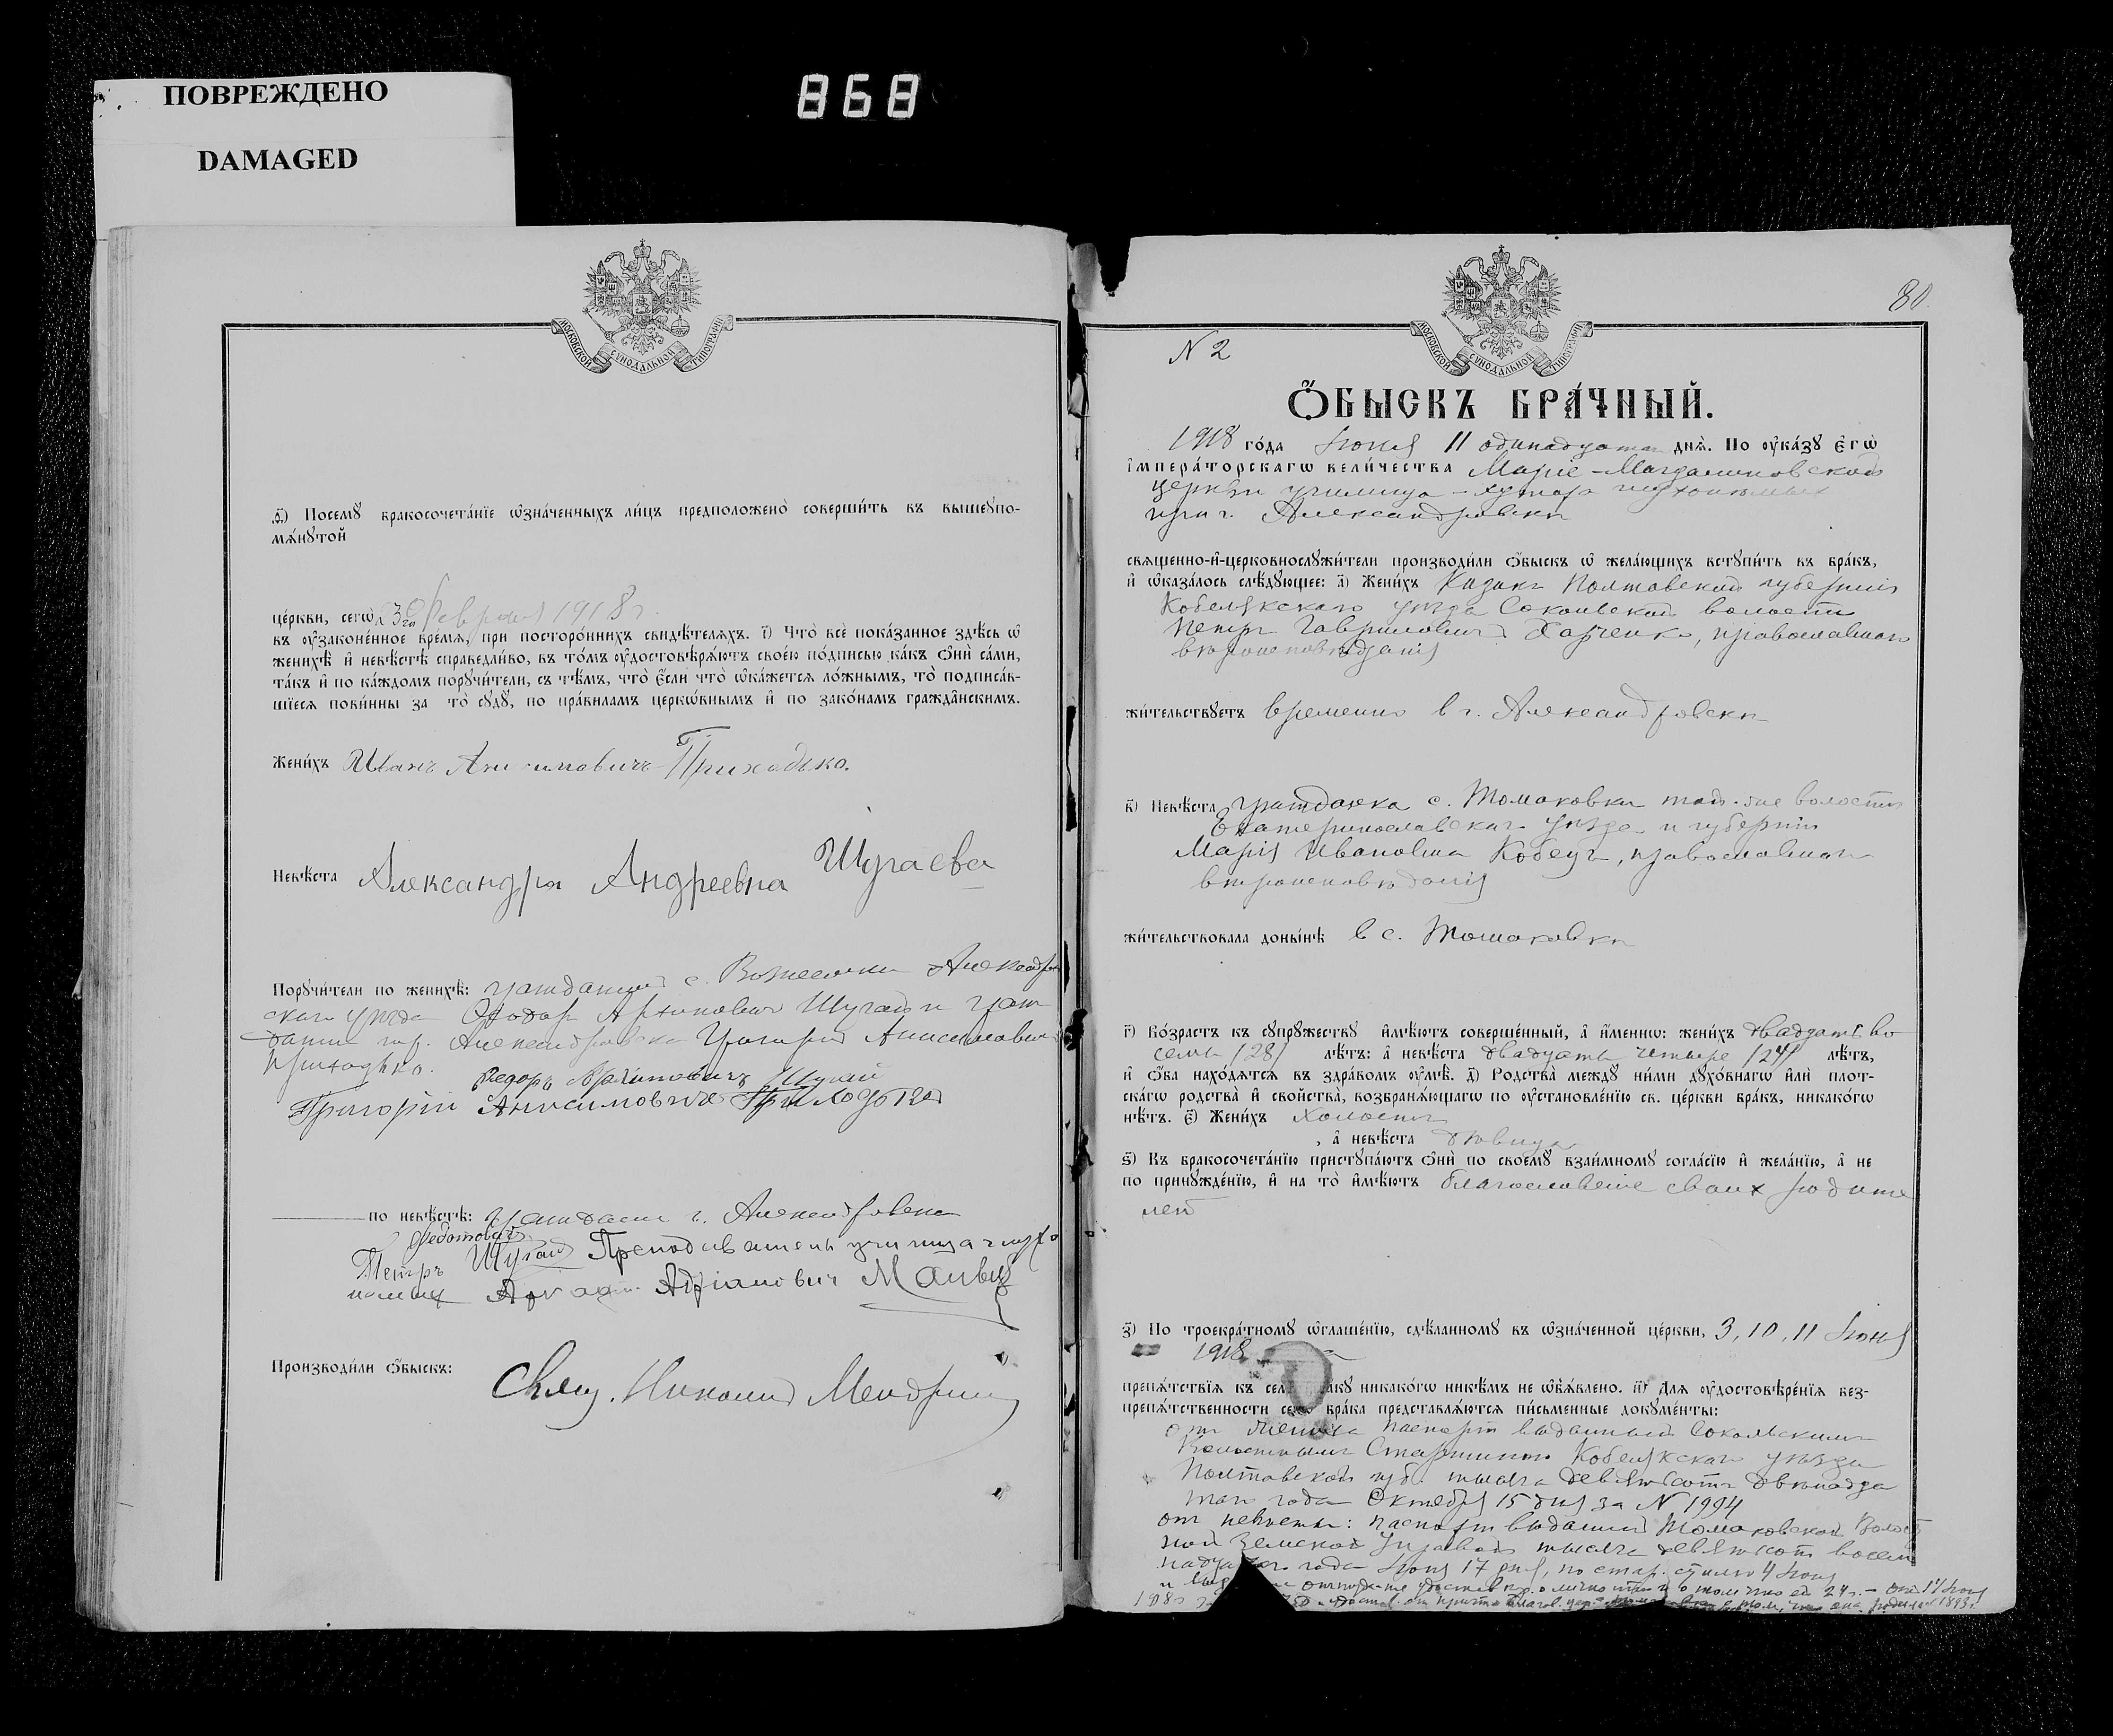 ПОВРЕЖДЕНО
DAMAGED
868
МОСКОВСКОЙ СѴНОДАЛЬНОЙ ТИПОГРАФІИ
ѳ҃) Посемꙋ̀ бракосочета́нїе ѡ҆зна́ченныхъ ли́цъ предположено̀ соверши́ть въ вышеꙋпо-
мѧ́нꙋтой
це́ркви, сегѡ̀ 3го Февраля 1918 г.
въ ᲂу҆зако́ненное вре́мѧ, при посторо́ннихъ свидѣ́телѧхъ. і҃) Что̀ всѐ пока́занное здѣ́сь ѡ҆
женихѣ̀ и҆ невѣ́стѣ справедли́во, въ то́мъ ᲂу҆достовѣрѧ́ютъ свое́ю по́дписью ка́къ ѻ҆нѝ са́ми,
та́къ и҆ по ка́ждомъ порꙋчи́тели, съ тѣ́мъ, что̀ є҆́сли что̀ ѡ҆ка́жетсѧ ло́жнымъ, то̀ подписа́в-
шїесѧ пови́нны за то̀ сꙋдꙋ̀, по пра́виламъ церко́внымъ и҆ по зако́намъ гражда́нскимъ.
Жени́хъ Иванъ Анисимовичъ Приходько.
Невѣ́ста Александра Андреевна Шугаева
Порꙋчи́тели по женихѣ̀: гражданинъ с. Вознесенки Александров
скаго уѣзда Ѳедоръ Архиповичъ Шугай и граж
данинъ гор. Александровска Григорій Анисимовичъ
Приходько. Федоръ Архиповичъ Шугай
Григорій Анисимовичъ Приходько
по невѣ́стѣ: гражданин г. Александровска
Федотовъ
Петръ Шугай Преподаватель училища глухо
немых Адріановичъ
Производи́ли ѻ҆́быскъ: Свящ. Николай
80
N 2
МОСКОВСКОЙ СѴНОДАЛЬНОЙ ТИПОГРАФІИ
Ѻ҆́БЫСКЪ БРА́ЧНЫЙ.
1918 го́да Іюня 11 одинадцата днѧ̀. По ᲂу҆ка́зꙋ є҆гѡ̀
і҆мпера́торскагѡ вели́чества Маріе-Магдалиновской
церкви училища-хутора глухонѣмых
при г. Александровскѣ
свѧще́нно-и҆-церковнослꙋжи́тели производи́ли ѻ҆́быскъ ѡ҆ жела́ющихъ встꙋпи́ть въ бра́къ,
и҆ ѡ҆каза́лось слѣ́дꙋющее: а҃) Жени́хъ Казакъ Полтавской губерніи
Кобелякскаго уѣзда Сокольской волости
Петръ Гавриловичъ Харченко, православнаго
вѣроисповѣданія
жи́тельствꙋетъ временно в г. Александровскѣ
в҃) Невѣ́ста гражданка с. Томаковки той-же волости
Екатеринославскаго уѣзда и губерніи
Марія Ивановна Кобецъ, православнаго
вѣроисповѣданія
жи́тельствовала доны́нѣ в с. Томаковкѣ
г҃) Во́зрастъ къ сꙋпрꙋ́жествꙋ и҆мѣ́ютъ соверше́нный, а҆ и҆́менно: жени́хъ двадцать во
семь /28/ лѣ́тъ: а҆ невѣ́ста двадцать четыре /24/ лѣ́тъ,
и҆ ѻ҆́ба нахо́дѧтсѧ въ здра́вомъ ᲂу҆мѣ̀. д҃) Родства̀ междꙋ̀ ни́ми дꙋхо́внагѡ и҆лѝ плот-
ска́гѡ родства̀ и҆ сво́йства̀, возбранѧ́ющагѡ по ᲂу҆становле́нїю св. це́ркви бра́къ, никако́гѡ
нѣ́тъ. є҃) Жени́хъ холостъ
, а҆ невѣ́ста дѣвица
ѕ҃) Къ бракосочета́нїю пристꙋпа́ютъ ѻ҆нѝ по своемꙋ̀ взаи́мномꙋ согла́сїю и҆ жела́нїю, а҆ не
по принꙋжде́нїю, и҆ на то̀ и҆мѣ́ютъ благословеніе своих родите
лей
з҃) По троекра́тномꙋ ѡ҆глаше́нїю, сдѣ́ланномꙋ въ ѡ҆зна́ченной це́ркви, 3, 10, 11 Іюня
1918
препѧ́тствїѧ къ семꙋ̀ бра́кꙋ никако́гѡ никѣ́мъ не ѡ҆б̾ѧ́влено. и҃) Длѧ ᲂу҆достовѣре́нїѧ без-
препѧ́тственности сегѡ̀ бра́ка представлѧ́ютсѧ пи́сьменные докꙋме́нты:
от жениха паспортъ выданный Сокольскимъ
Волостнымъ Старшиною Кобелякскаго уѣзда
Полтавской губ. тысяча девятьсотъ двѣнадца
таго года Октября 15 дня за N 1994
от невѣсты: паспортъ выданный Томаковской Волост
ной Земской Управой тысяча девятьсот восем
надцатаго года Іюня 17 дня, по стар. стилю 4 Іюня
и о личности и о том что ей 24 г. —
родилась 1893 г.